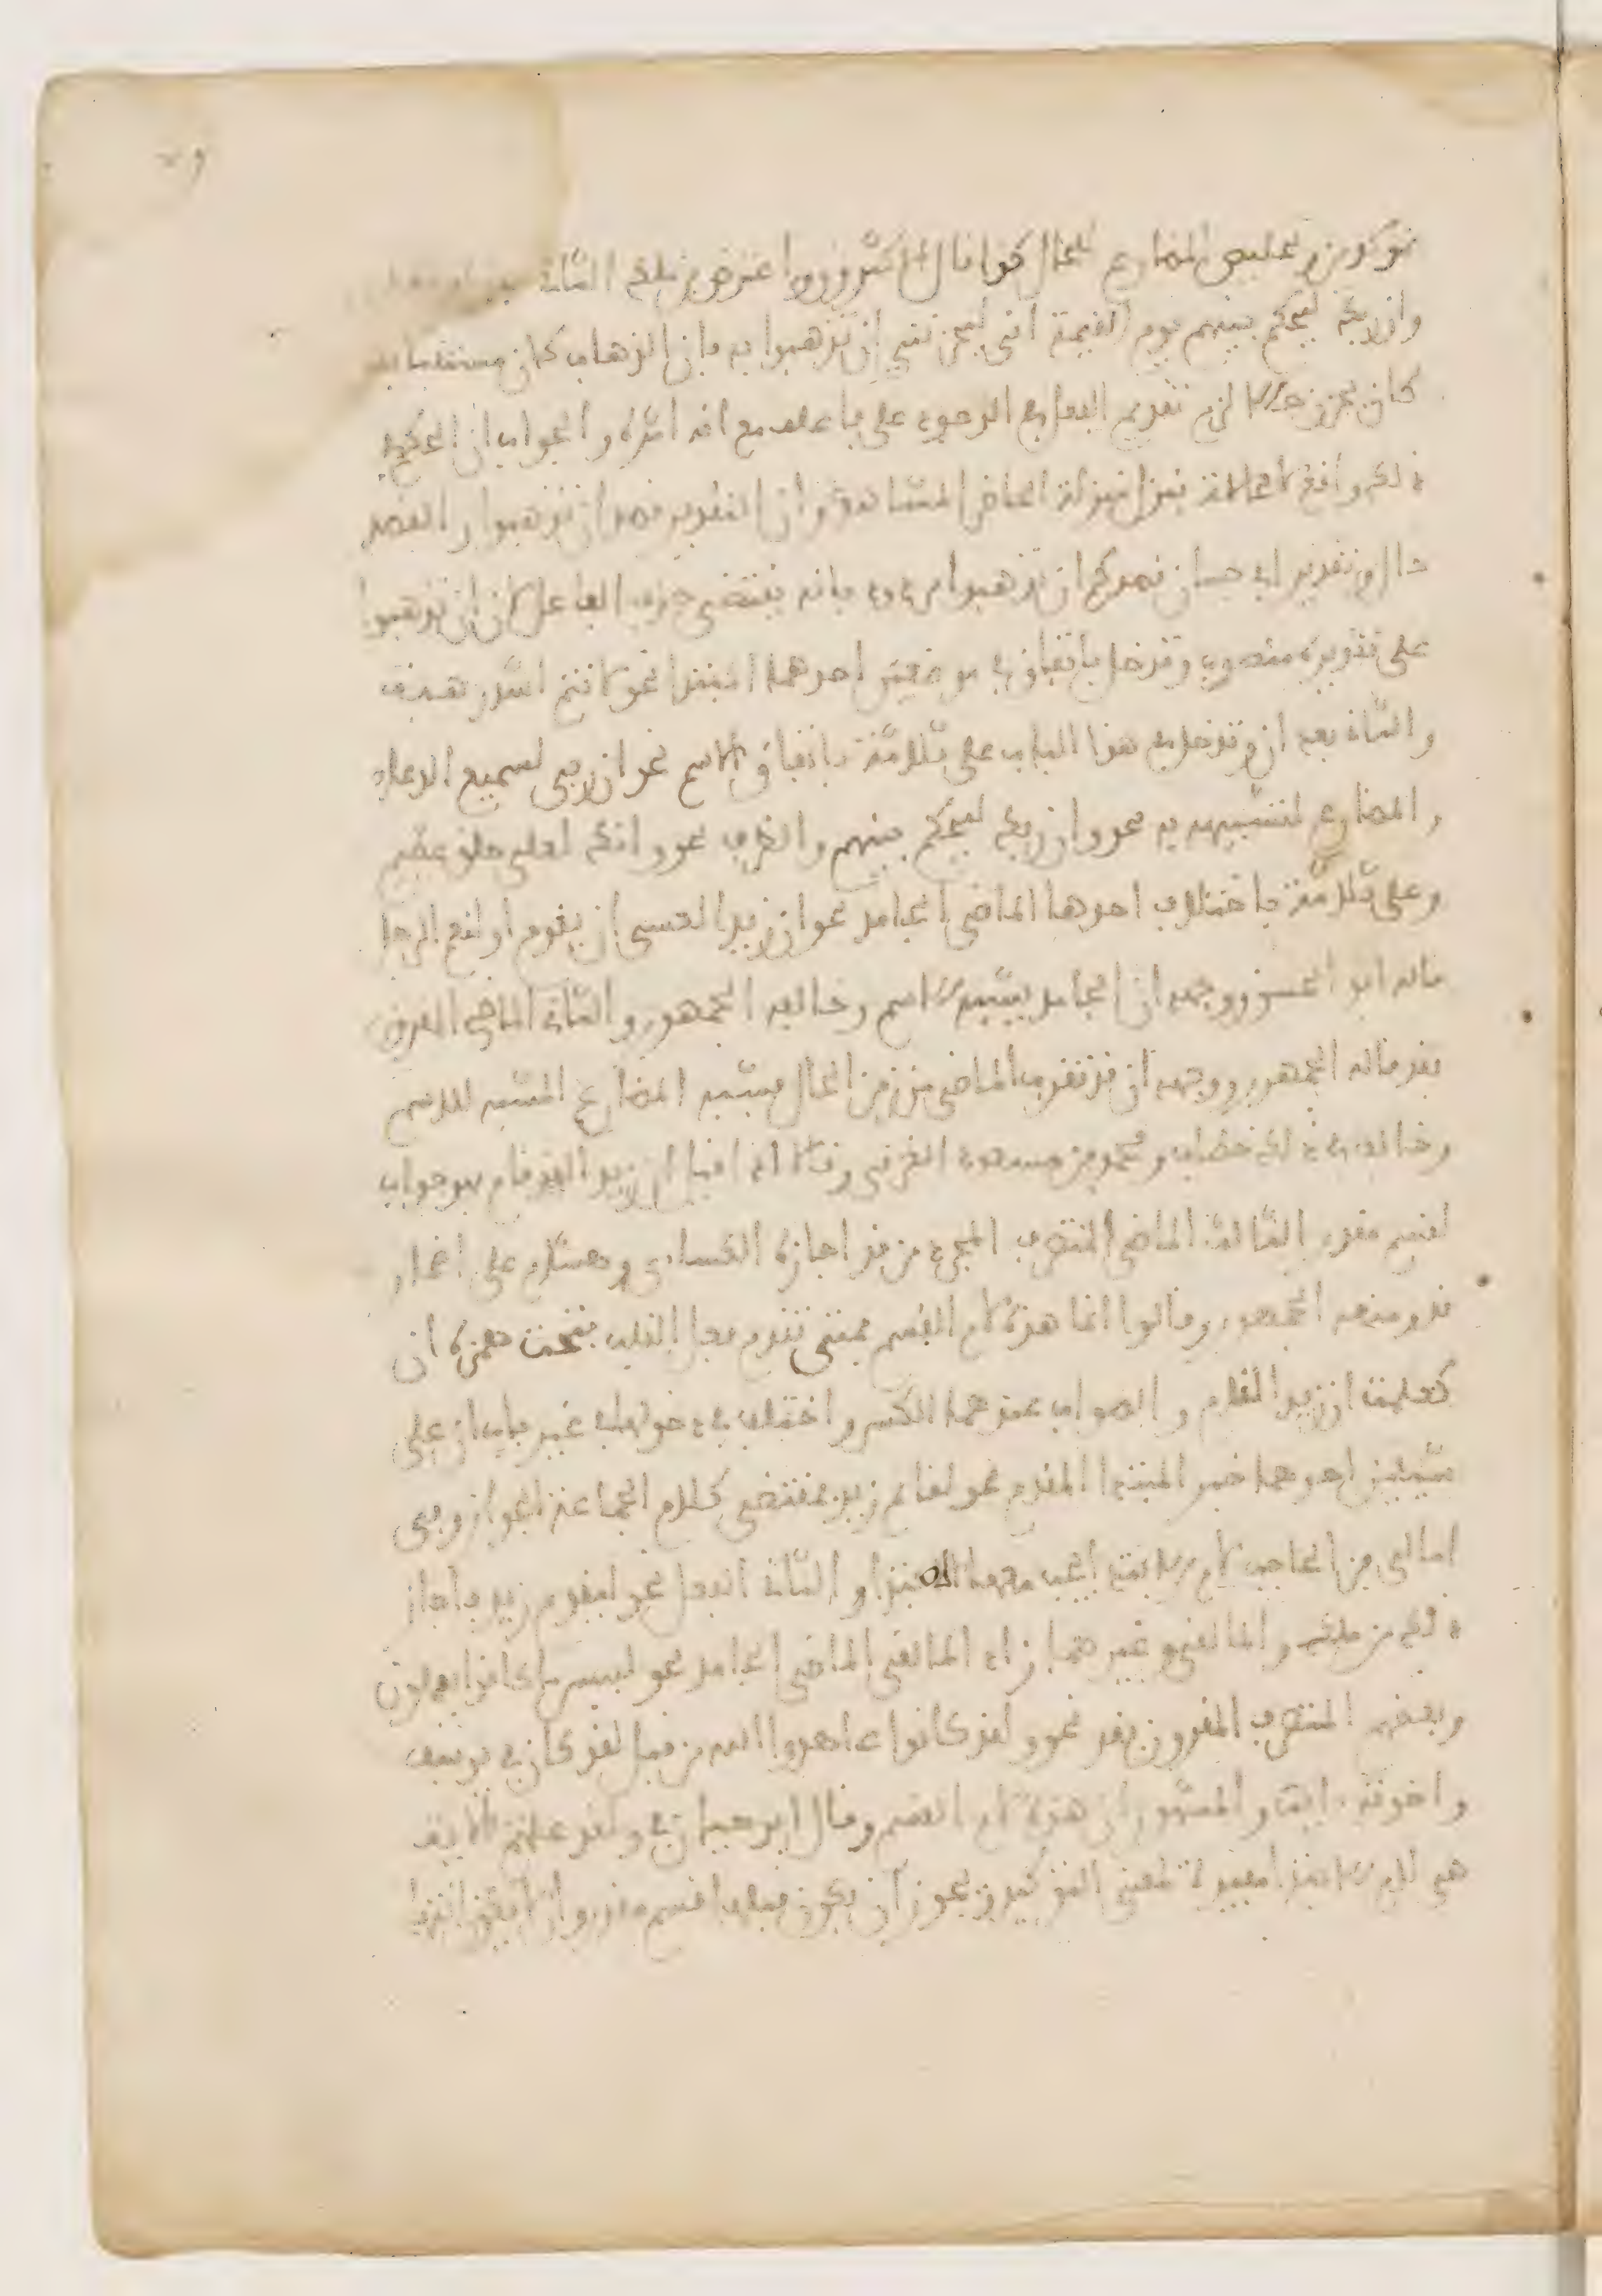 توكيدين وتخليص المضارع للحال كذا قال الاكثرون واعترض ذلك الثاني
وان ربك ليحكم بينهم يوم القيمة اني ليحزنني ان تذهبوا به فان الذهاب كان مستقبلا فلو
كان يحزن حالا لزم تقديم الفعل في الوجود على فاعله مع انه اثره والجواب ان الحكم في
ذلك واقع لا محالة فنزل منزلة الحاضر المشاهد وان التقدير قصد ان تذهبوا والقصد
حال وتقدير ابي حيان قصدكم ان تذهبوا مردود بانه يقتضي حذف الفاعل لان ان تذهبوا
على تقديره منصوب وتدخل باتفاق في موضعين احدهما المبتدا نحو لانتم اشد رهبة
والثاني بعد ان وتدخل في هذا الباب على ثلاثة باتفاق الاسم نحو ان ربي لسميع الدعاء
والمضارع لشبهه به نحو وان ربك ليحكم بينهم والظرف نحو وانك لعلى خلق عظيم
وعلى ثلاثة باختلاف احدها الماضي الجامد نحو ان زيدا لعسى ان يقوم او لنعم الرجل
قاله ابو الحسن ووجهه ان الجامد يشبه الاسم وخالفه الجمهور والثاني الماضي المقرون
بقد قاله الجمهور ووجهه ان قد تقرب الماضي من زمن الحال فيشبه المضارع المشبه للاسم
وخالف في ذلك خطاب ومحمد بن مسعود الغزني وقالا اذا قيل ان زيدا لقد قام فهو جواب
لقسم مقدر الثالث الماضي المتصرف المجرد من قد اجازه الكسائي وهشام على اضمار
قد ومنعه الجمهور وقالوا انما هذه لام القسم فمتى تقدم فعل القلب فتحت همزة ان
كعلمت ان زيدا لقام والصواب عندهما الكسر واختلف في دخولها في غير باب ان على
شيئين احدهما خبر المبتدا المقدم نحو لقائم زيد فمقتضى كلام الجماعة الجواز وفي
امالي بن الحاجب لام الابتدا يجب معها المبتدا والثاني الفعل نحو ليقوم زيد فاجاز
ذلك بن ملك والمالقي وغيرهما زاد المالقي الماضي الجامد نحو لبيس ما كانوا يعملون
وبعضهم المتصرف المقرون بقد نحو ولقد كانوا عاهدوا الله من قبل لقد كان في يوسف
واخوته ايات والمشهور ان هذه لام القسم وقال ابو حيان في ولقد علمتم الايه
هي لام الابتدا مفيدة لمعنى التوكيد ويجوز ان يكون قبلها قسم مقدر وان لا يكون انتهى